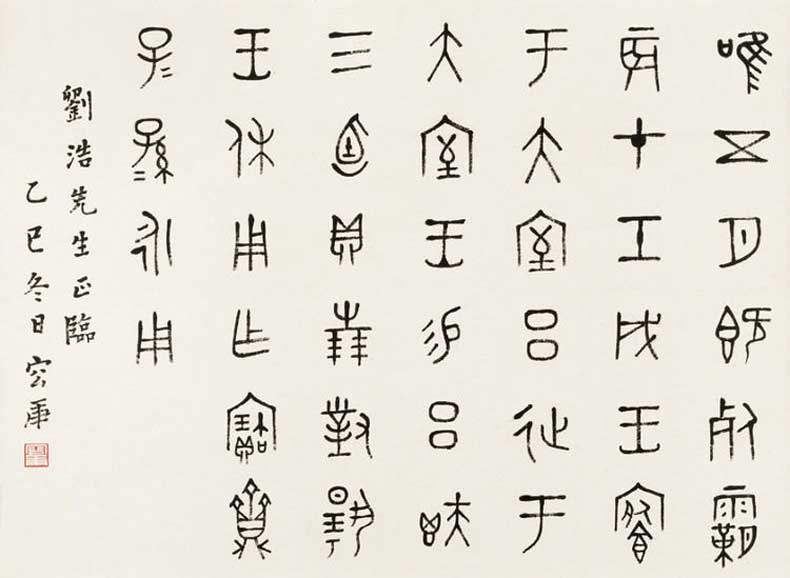 唯五月既死霸
辰才壬戌王
于大室呂延于
大室王易呂
三卣貝卅朋對揚
王休用乍寶齍
子=孫=永用
劉浩先生正臨
乙巳冬日容庚